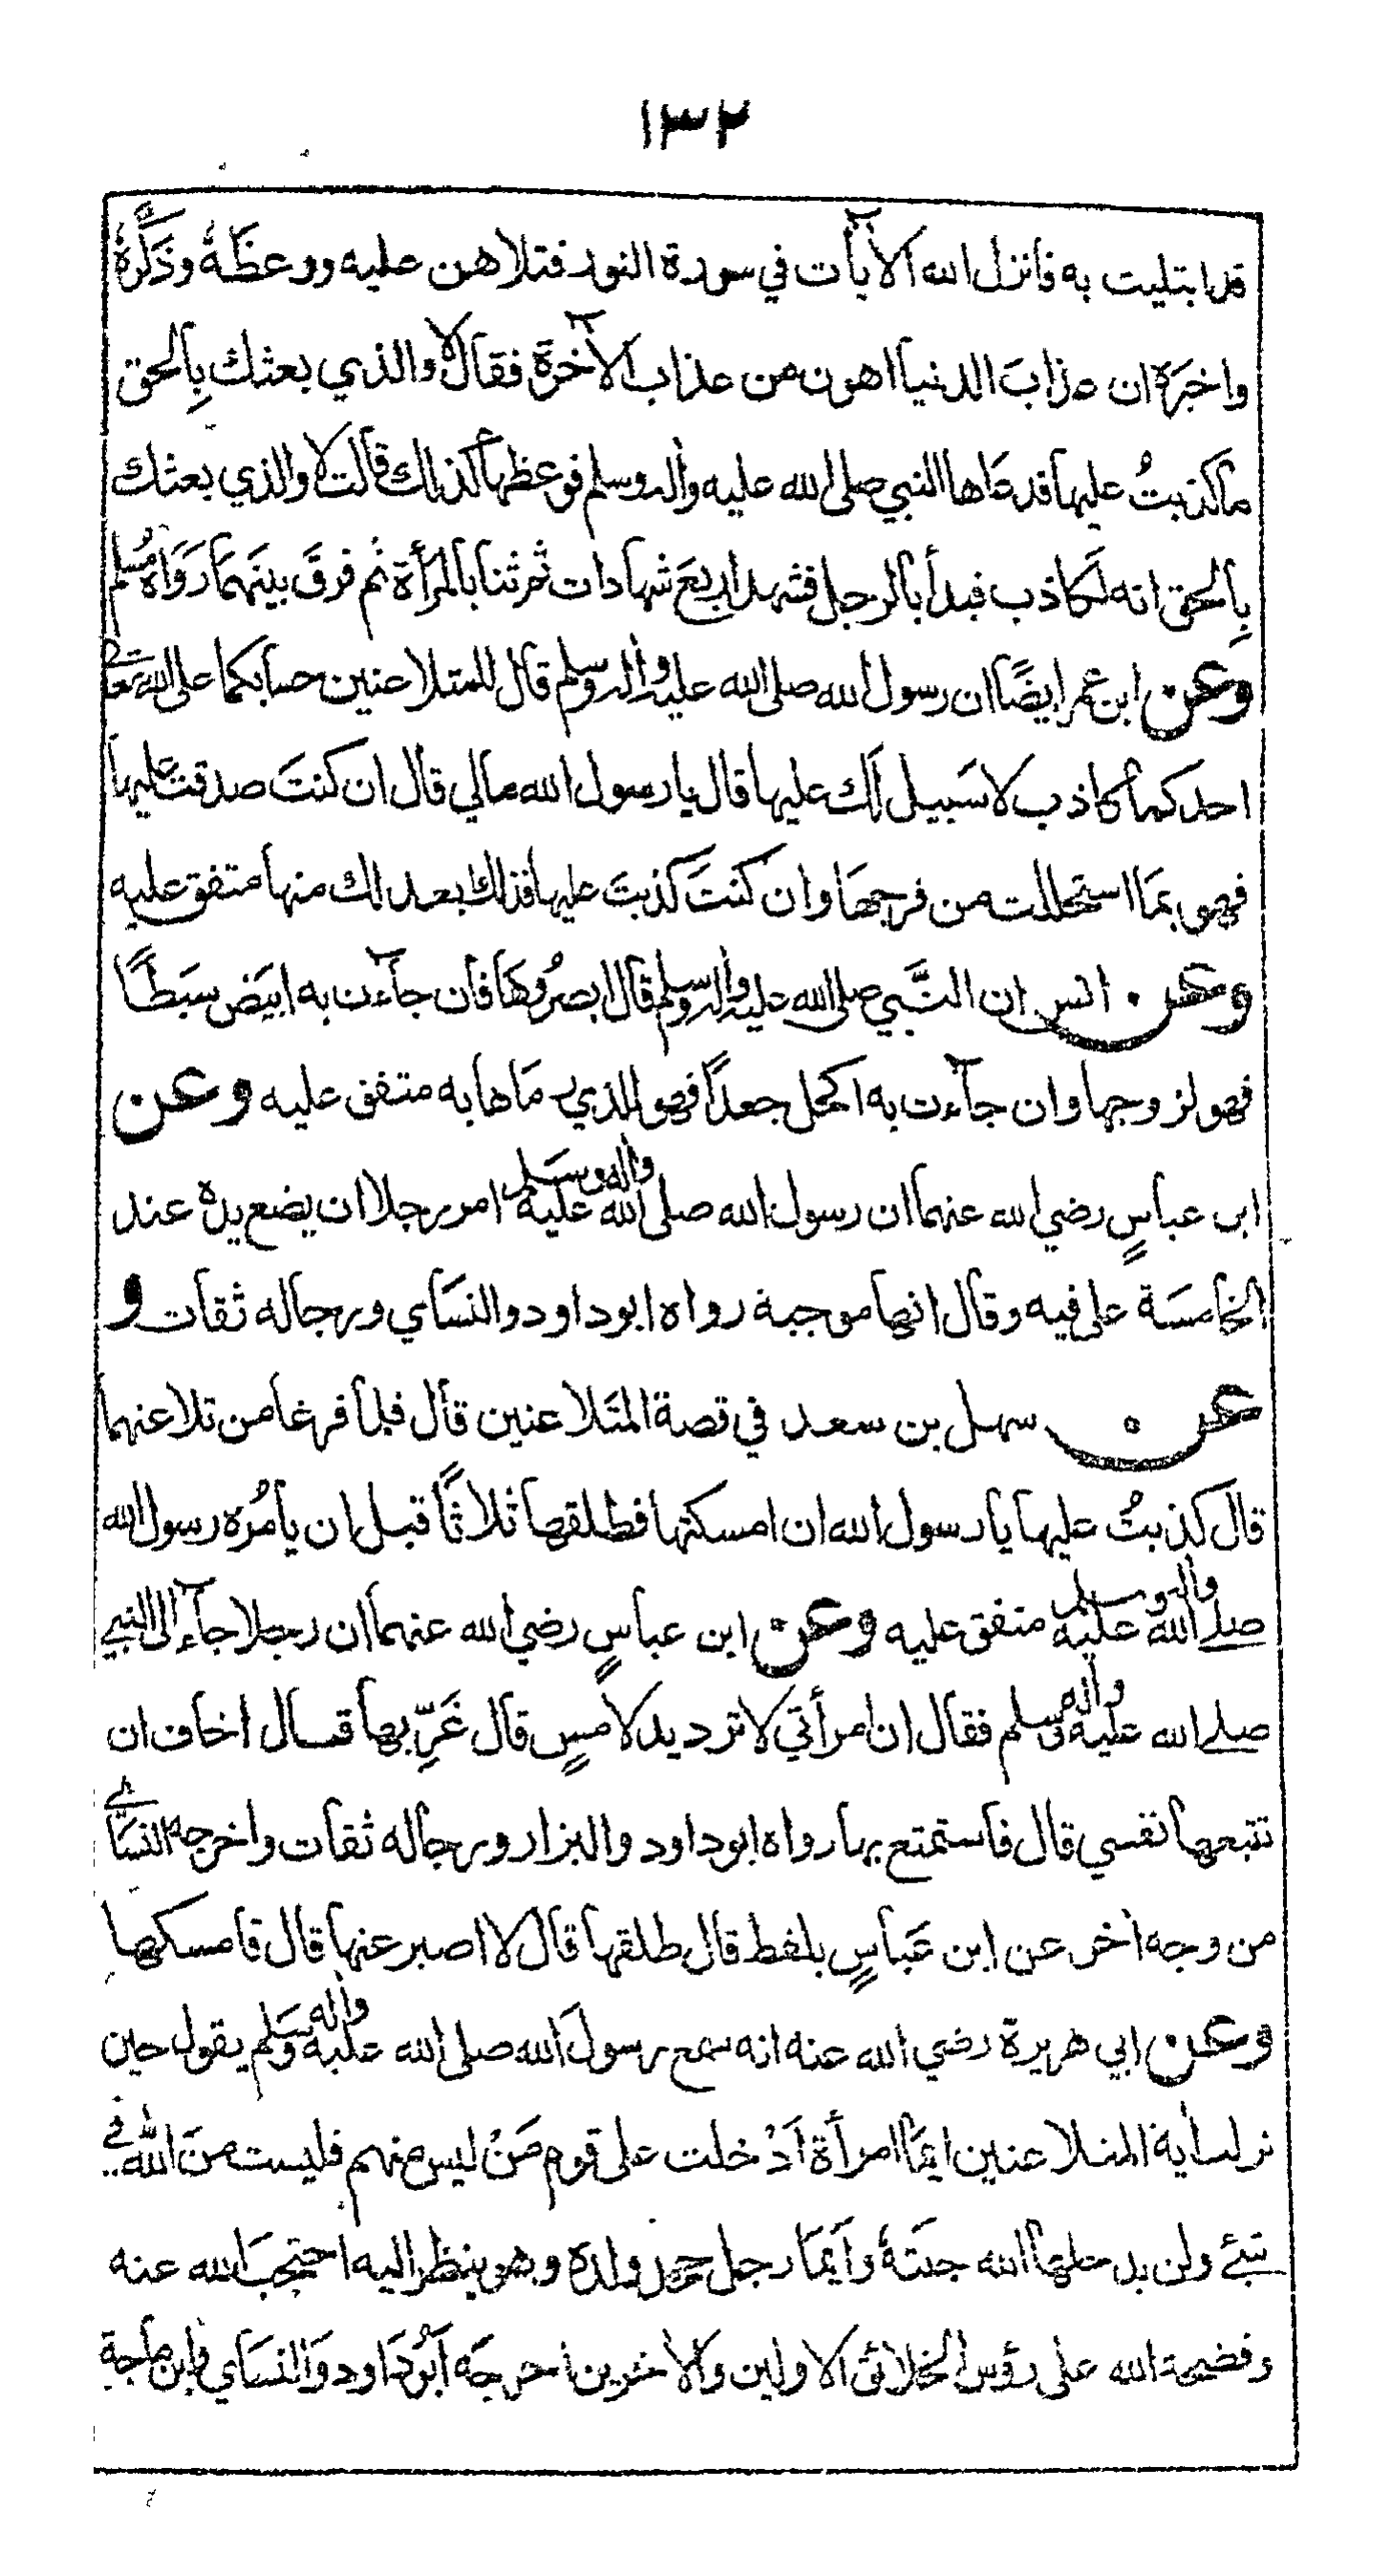 ١٣٢
قد ابتليت به فانزل الله الآيات في سورة النور فتلاهن عليه ووعظَهُ وذَكَّرَهُ
واخبرَه ان عذابَ الدنيا اهون من عذاب الآخرة فقال لا والذي بعثك بِالحق
ما كذبتُ عليها ثم دعاها النبي صلى الله عليه واله وسلم فوعظها كذلك قالت لا والذي بعثك
بِالحق انه لَكاذب فبدأ بالرجل فشهد اربعَ شهادات ثم ثنا بالمرأة ثم فرقَ بينَهمَا رَوَاهُ مُسلم
وعن ابن عمر ايضًا ان رسول الله صلى الله عليه واله وسلم قال للمتلاعنين حسابكما على الله تعالى
احدكما كاذب لا سَبيل لَك عليها قال يا رسول الله مالي قال ان كنتَ صدقت عليها
فهو بمَا استحللت من فرجهَا وان كنتَ كذبتَ عليها فذلك ابعد لك منها متفق عليه
وعن انس ان النَّبي صلى الله عليه واله وسلم قال ابصرُوهَا فان جآءت به ابيَض سبَطًا
فهو لزوجها وان جآءت به اكحل جعدًا فهو للذي رمَاها به متفق عليه وعن
ابن عباسٍ رضي الله عنهما ان رسول الله صلى الله عليه واله وسلم امر رجلا ان يضع يدهُ عند
الخامسَة على فيه وقال انها موجبة رواه ابو داود والنسَاي ورجاله ثقات و
عن سهل بن سعد في قصة المتَلاعنين قال فلما فرغا من تلاعنهما
قال كذبتُ عليها يا رسول الله ان امسكتها فطلقها ثلاثًا قبل ان يأمُره رسول الله
صلى الله عليه واله وسلم متفق عليه وعن ابن عباسٍ رضي الله عنهما ان رجلا جآء الى النبي
صلى الله عليه واله وسلم فقال ان امرأتي لا ترد يد لامسٍ قال غَرِّبها قال اخاف ان
تتبعها نفسي قال فاستمتع بها رواه ابو داود والبزار ورجاله ثقات واخرجه النسَائي
من وجه اخر عن ابن عَباسٍ بلفظ قال طلقها قال لا اصبر عنها قال فامسكها
وعن ابي هريرة رضي الله عنه انه سمع رسول الله صلى الله عليه واله وسَلم يقول حين
نزلت اية المتلاعنين ايمَا امرأة اَدْخلت على قوم مَنْ ليس منهم فليست منَ الله في
شئ ولن يدخلها الله جنتَهُ وَايمَا رجل جحد ولده وهو ينظر اليه احتجبَ الله عنه
وفضحه الله على رؤس الخلائق الاولين والاخرين اخرجَه اَبُو دَاود وَالنسَاي وابن ماجة